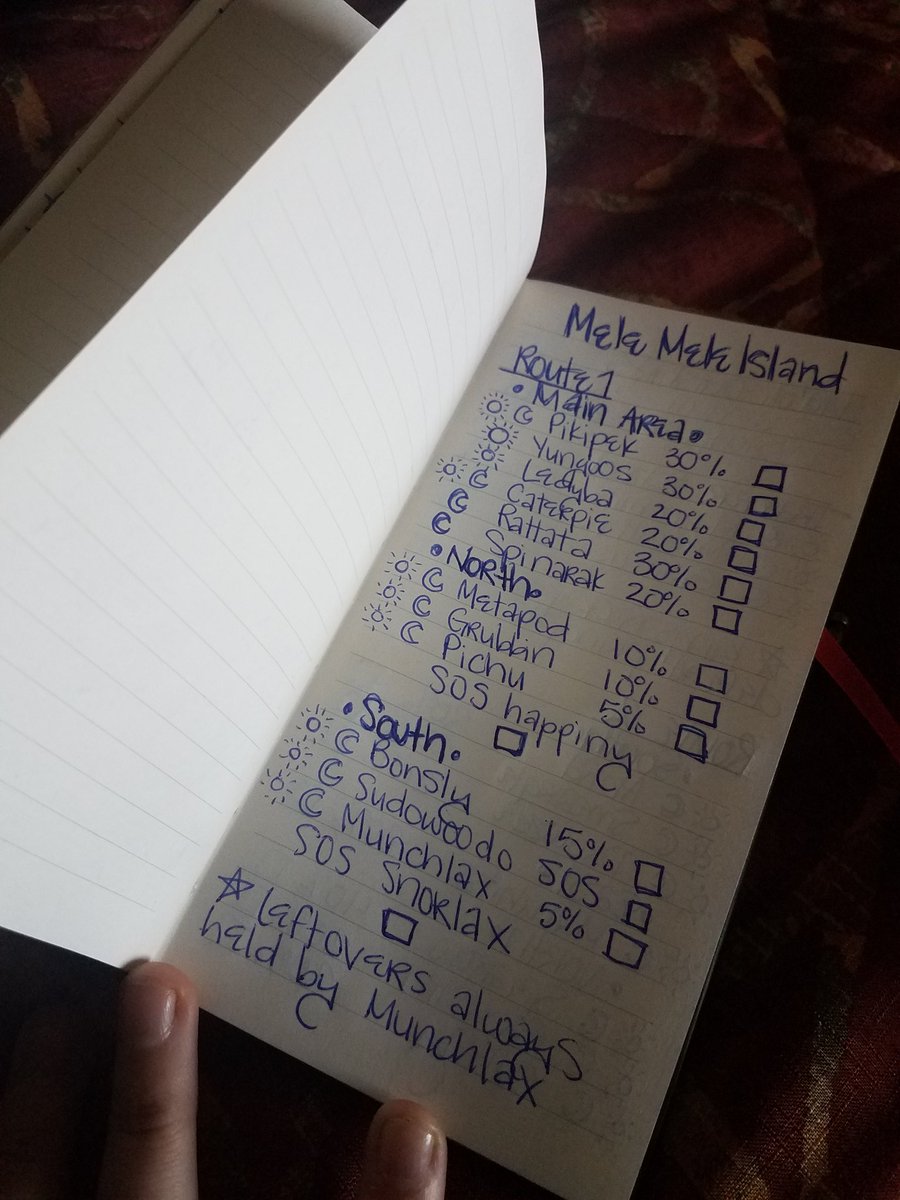 Mele Mele Island
Route 1
• Main Area •
Pikipek 30%
Yungoos 30%
Ledyba 20%
Caterpie 20%
Rattata 30%
Spinarak 20%
• North •
Metapod 10%
Grubbin 10%
Pichu 5%
SOS happiny
• South •
Bonsly 15%
Sudowoodo SOS
Munchlax 5%
SOS Snorlax
☆ Leftovers always
held by Munchlax